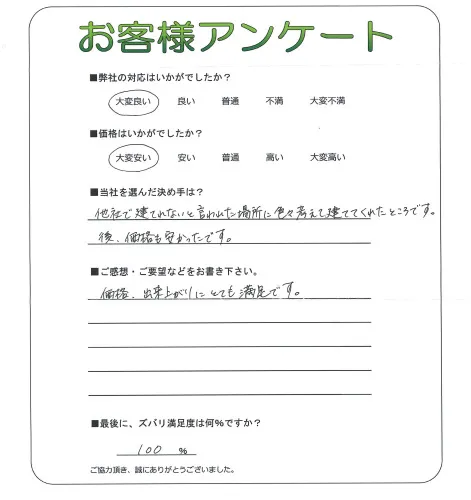 お客様アンケート
■弊社の対応はいかがでしたか？
大変良い 良い 普通 不満 大変不満
■価格はいかがでしたか？
大変安い 安い 普通 高い 大変高い
■当社を選んだ決め手は？
他社で建てれないと言われた場所に色々考えて建ててくれたところです。
後、価格も安かったです。
■ご感想・ご要望などをお書き下さい。
価格、出来上がりにとても満足です。
■最後に、ズバリ満足度は何％ですか？
100 ％
ご協力頂き、誠にありがとうございました。